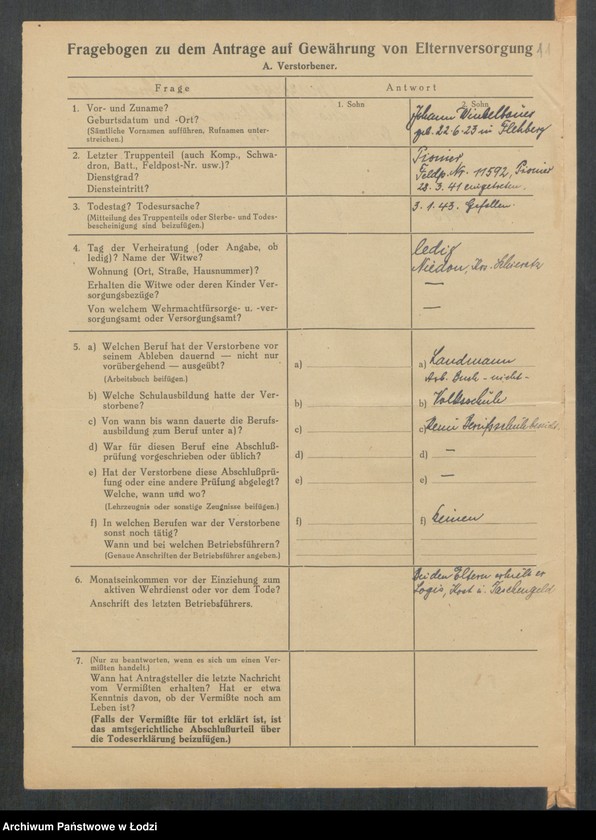 Fragebogen zu dem Antrage auf Gewährung von Elternversorgung
A. Verstorbener.
Frage
Antwort
1. Sohn
2. Sohn
1. Vor- und Zuname?
Geburtsdatum und -Ort?
(Sämtliche Vornamen aufführen, Rufnamen unter-
streichen.)
Johann
geb. 22.6.23 in
2. Letzter Truppenteil (auch Komp., Schwa-
dron, Batt., Feldpost-Nr. usw.)?
Dienstgrad?
Diensteintritt?
Pionier
Feldp. Nr. 11592, Pionier
28. 3. 41 eingetreten.
3. Todestag? Todesursache?
(Mitteilung des Truppenteils oder Sterbe- und Todes-
bescheinigung sind beizufügen.)
3. 1. 43. Gefallen.
4. Tag der Verheiratung (oder Angabe, ob
ledig)? Name der Witwe?
Wohnung (Ort, Straße, Hausnummer)?
Erhalten die Witwe oder deren Kinder Ver-
sorgungsbezüge?
Von welchem Wehrmachtfürsorge- u. -ver-
sorgungsamt oder Versorgungsamt?
ledig
Niedon, Krs.
—
—
5. a) Welchen Beruf hat der Verstorbene vor
seinem Ableben dauernd — nicht nur
vorübergehend — ausgeübt?
(Arbeitsbuch beifügen.)
a)
a) Landmann
Arb. Buch - nicht -
b) Welche Schulausbildung hatte der Ver-
storbene?
b)
b) Volksschule
c) Von wann bis wann dauerte die Berufs-
ausbildung zum Beruf unter a)?
c)
c) Keine Berufsschule
d) War für diesen Beruf eine Abschluß-
prüfung vorgeschrieben oder üblich?
d)
d) —
e) Hat der Verstorbene diese Abschlußprü-
fung oder eine andere Prüfung abgelegt?
Welche, wann und wo?
(Lehrzeugnis oder sonstige Zeugnisse beifügen.)
e)
e) —
f) In welchen Berufen war der Verstorbene
sonst noch tätig?
Wann und bei welchen Betriebsführern?
(Genaue Anschriften der Betriebsführer angeben.)
f)
f) Keinen
6. Monatseinkommen vor der Einziehung zum
aktiven Wehrdienst oder vor dem Tode?
Anschrift des letzten Betriebsführers.
Bei den Eltern erhielt er
Logis, Kost u. Taschengeld
7. (Nur zu beantworten, wenn es sich um einen Ver-
mißten handelt.)
Wann hat Antragsteller die letzte Nachricht
vom Vermißten erhalten? Hat er etwa
Kenntnis davon, ob der Vermißte noch am
Leben ist?
(Falls der Vermißte für tot erklärt ist, ist
das amtsgerichtliche Abschlußurteil über
die Todeserklärung beizufügen.)
Archiwum Państwowe w Łodzi